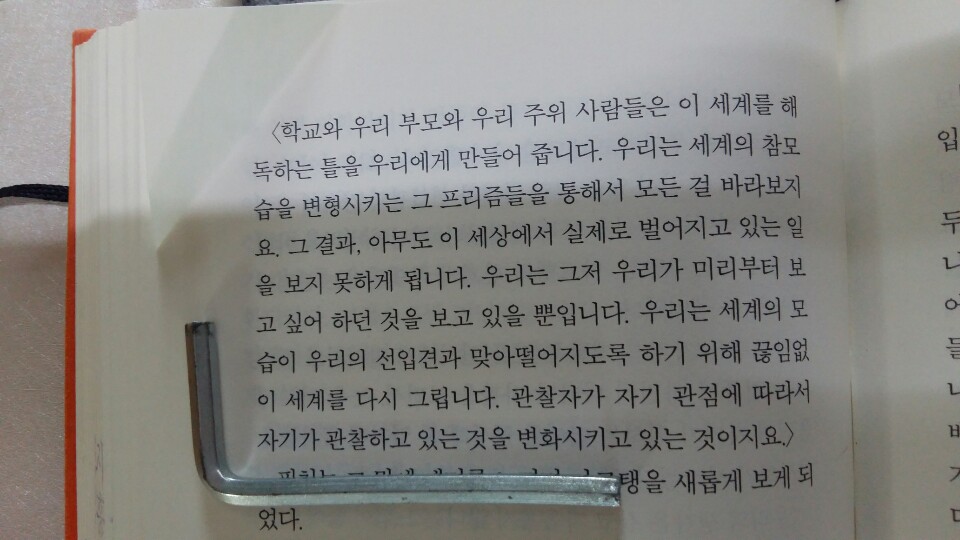 〈학교와 우리 부모와 우리 주위 사람들은 이 세계를 해
독하는 틀을 우리에게 만들어 줍니다. 우리는 세계의 참모
습을 변형시키는 그 프리즘들을 통해서 모든 걸 바라보지
요. 그 결과, 아무도 이 세상에서 실제로 벌어지고 있는 일
을 보지 못하게 됩니다. 우리는 그저 우리가 미리부터 보
고 싶어 하던 것을 보고 있을 뿐입니다. 우리는 세계의 모
습이 우리의 선입견과 맞아떨어지도록 하기 위해 끊임없
이 세계를 다시 그립니다. 관찰자가 자기 관점에 따라서
자기가 관찰하고 있는 것을 변화시키고 있는 것이지요.〉
새롭게 보게 되
었다.
입
두